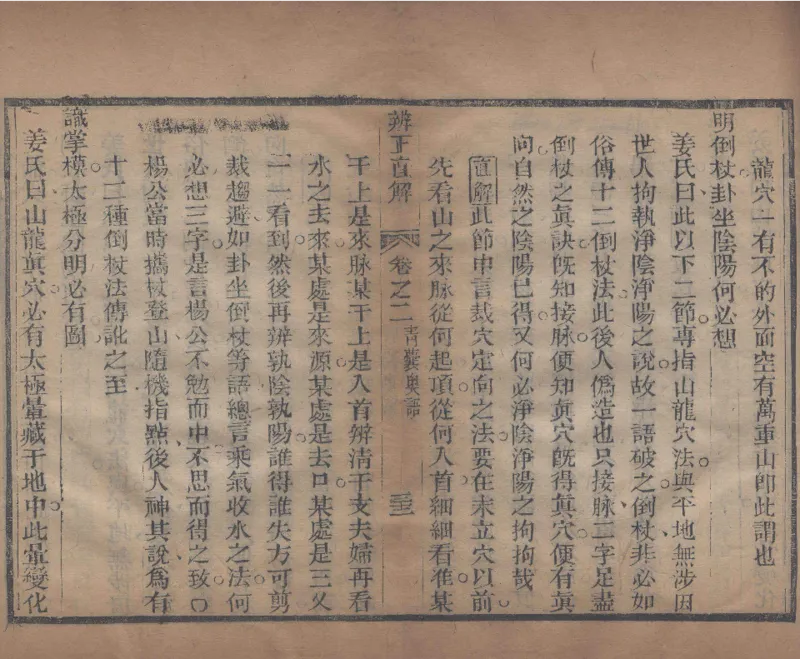 龍穴一有不的外面空有萬重山卽此謂也
明倒杖卦坐陰陽何必想
姜氏曰此以下二節專指山龍穴法與平地無涉因
世人拘執淨陰淨陽之說故一語破之倒杖非必如
俗傳十二倒杖法此後人僞造也只接脉二字足盡
倒杖之眞訣旣知接脉便知眞穴旣得眞穴便有眞
向自然之陰陽已得又何必淨陰淨陽之拘拘哉
直解此節申言裁穴定向之法要在未立穴以前
先看山之來脉從何起頂從何入首細細看准某
辨正直解 卷之二 青囊奥語 三三
干上是來脉某干上是入首辨清干支夫婦再看
水之去來某處是來源某處是去口某處是三叉
一一看到然後再辨孰陰孰陽誰得誰失方可剪
裁趨避如卦坐倒杖等語總言乘氣收水之法何
必想三字是言楊公不勉而中不思而得之致○
楊公當時攜杖登山隨機指點後人神其說爲有
十二種倒杖法傳訛之至
識掌模太極分明必有圖
姜氏曰山龍眞穴必有太極暈藏于地中此暈變化